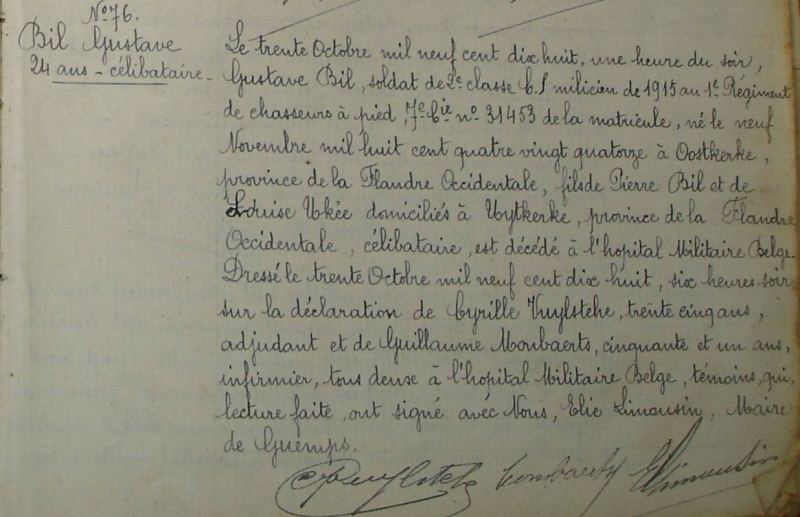 N° 76.
Bil Gustave
24 ans - célibataire -
Le trente Octobre mil neuf cent dix huit, une heure du soir,
Gustave Bil, soldat de 2e classe C.S milicien de 1915 au 1e Régiment
de chasseurs à pied, 7e Cie no 31453 de la matricule, né le neuf
Novembre mil huit cent quatre vingt quatorze à Oostkerke,
province de la Flandre Occidentale, fils de Pierre Bil et de
Louise domiciliés à Uytkerke, province de la Flandre
Occidentale, célibataire, est décédé à l'hopital Militaire Belge.
Dressé le trente Octobre mil neuf cent dix huit, six heures soir
sur la déclaration de Cyrille Vuylsteke, trente cinq ans,
adjudant et de Guillaume Mombaerts, cinquante et un ans,
infirmier, tous deux à l'hopital Militaire Belge, témoins, qui,
lecture faite, ont signé avec Nous, Elie Limousin, Maire
de Guemps.
CVuylsteke Mombaerts ELimousin